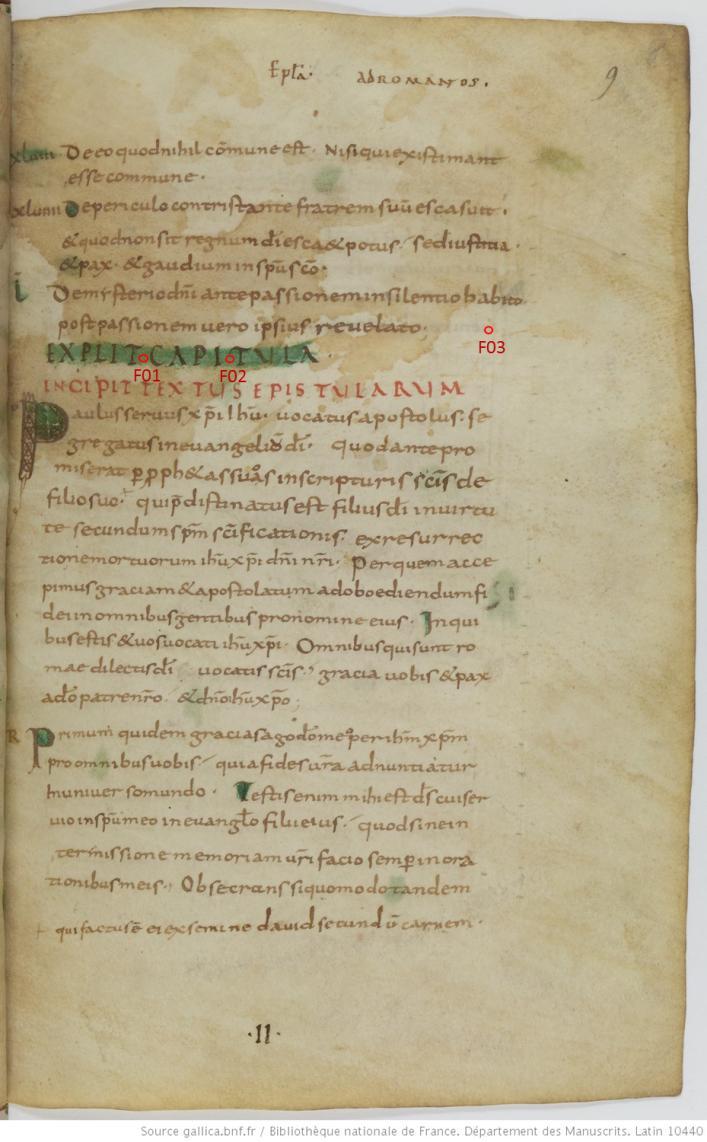 Epla. ADROMANOS.
9
xlvııı De eo quod nihil cōmune est. Nisi qui existimant
esse commune.
xlvıııı De periculo contristante fratrem suū esca sua.
& quod non sit regnum dī esca & potus. sed iustitia.
& pax. & gaudium in spū scō.
l De mysterio dnī ante passionem in silentio habito
post passionem vero ipsius revelato.
EXPLIT CAPITULA
F01 F02 F03
INCIPIT TEXTUS EPISTULARUM
Paulus servus xpī ihū. vocatus apostolus. se
gregatus in evangeliū dī. quod ante pro
miserat p pph&as suos in scripturis scīs de
filio suo. qui pdistinatus est filius dī in virtu
te secundum spm scīficationis. ex resurrec
tione mortuorum ihū xpī dnī nrī. Per quem acce
pimus graciam & apostolatum ad oboediendum fi
dei in omnibus gentibus pro nomine eius. In qui
bus estis & vos vocati ihū xpī. Omnibus qui sunt ro
mae dilectis dī vocatis scīs. gracia vobis & pax
a dō patre nrō. & dnō ihū xpō;
R Primum quidem gracias ago dō meo per ihm xpm
pro omnibus vobis. quia fides vrā adnuntiatur
in universo mundo. Testis enim mihi est ds cui ser
vio in spū meo in evanglō filii eius. quod sine in
termissione memoriam vrī facio semp in ora
tionibus meis. Obsecrans si quomodo tandem
qui factus ē ei ex semine david secundū carnem.
.II.
Source gallica.bnf.fr / Bibliothèque nationale de France. Département des Manuscrits. Latin 10440